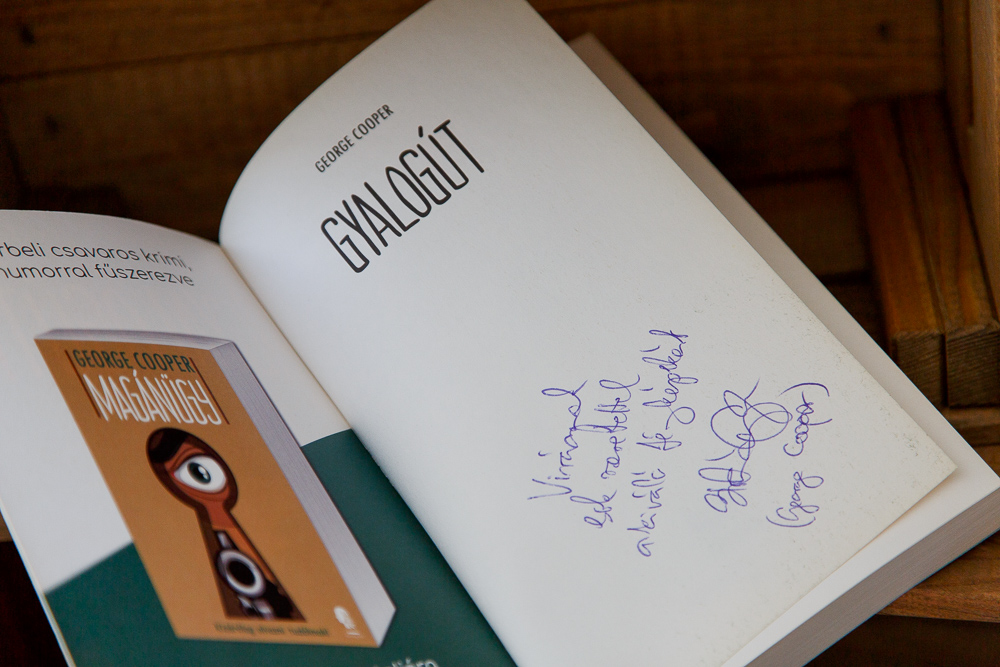 rbeli csavaros krimi,
humorral fűszerezve
GEORGE COOPER
MAGÁNÜGY
GEORGE COOPER
GYALOGÚT
sok szeretettel
a kiváló
(George Cooper)